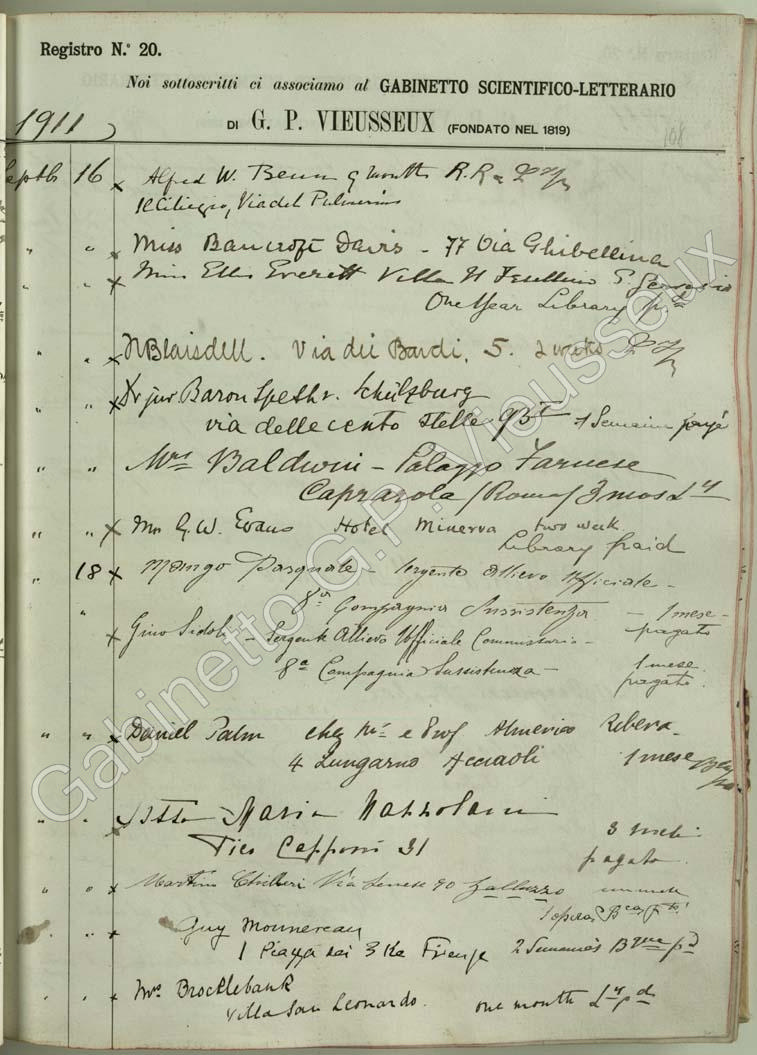 Registro N.° 20.
Noi sottoscritti ci associamo al GABINETTO SCIENTIFICO-LETTERARIO
DI G. P. VIEUSSEUX (FONDATO NEL 1819)
1911
108
Septb 16 x Alfred W. Benn 9 months R.R.
Il Ciliegio, Via del Palmerino
" " Miss Bancroft Davis - 77 Via Ghibellina
" " x Miss Ella Everett Villa Il Fesellino S. Gervasio
One Year Library pd
" " x Blaisdell. Via dei Bardi, 5. 2 weeks
" " x Dr jur Baron Speth v. Schülzburg
via delle cento stelle 1 Semaine payé
" " Mrs Baldwin - Palazzo Farnese
Caprarola (Roma) 3 mos Ly
" " x Mrs G. W. Evans Hotel Minerva two week
Library paid
" 18 x Pasquale - Sergente Allievo Ufficiale -
" 8a Compagnia Sussistenza - 1 mese -
pagato
x Gino Sidoli - Sergente Allievo Ufficiale Commissario -
8a Compagnia Sussistenza - 1 mese.
pagato.
" " x Daniel Palm chez Mr e Prof Almerico Ribera -
4 Lungarno Acciaoli 1 mese
" " x Maria Mazzolani
Pier Capponi 31 3 mesi
pagato.
" " x Martino Via Senese 90 Galluzzo un mese
" " x Guy Monnereau
1 Piazza dei 3 Re Firenze 2 Semaines Bque pd
" " x Mrs Brocklebank
Villa San Leonardo. one month Ly pd
Gabinetto G.P. Vieusseux